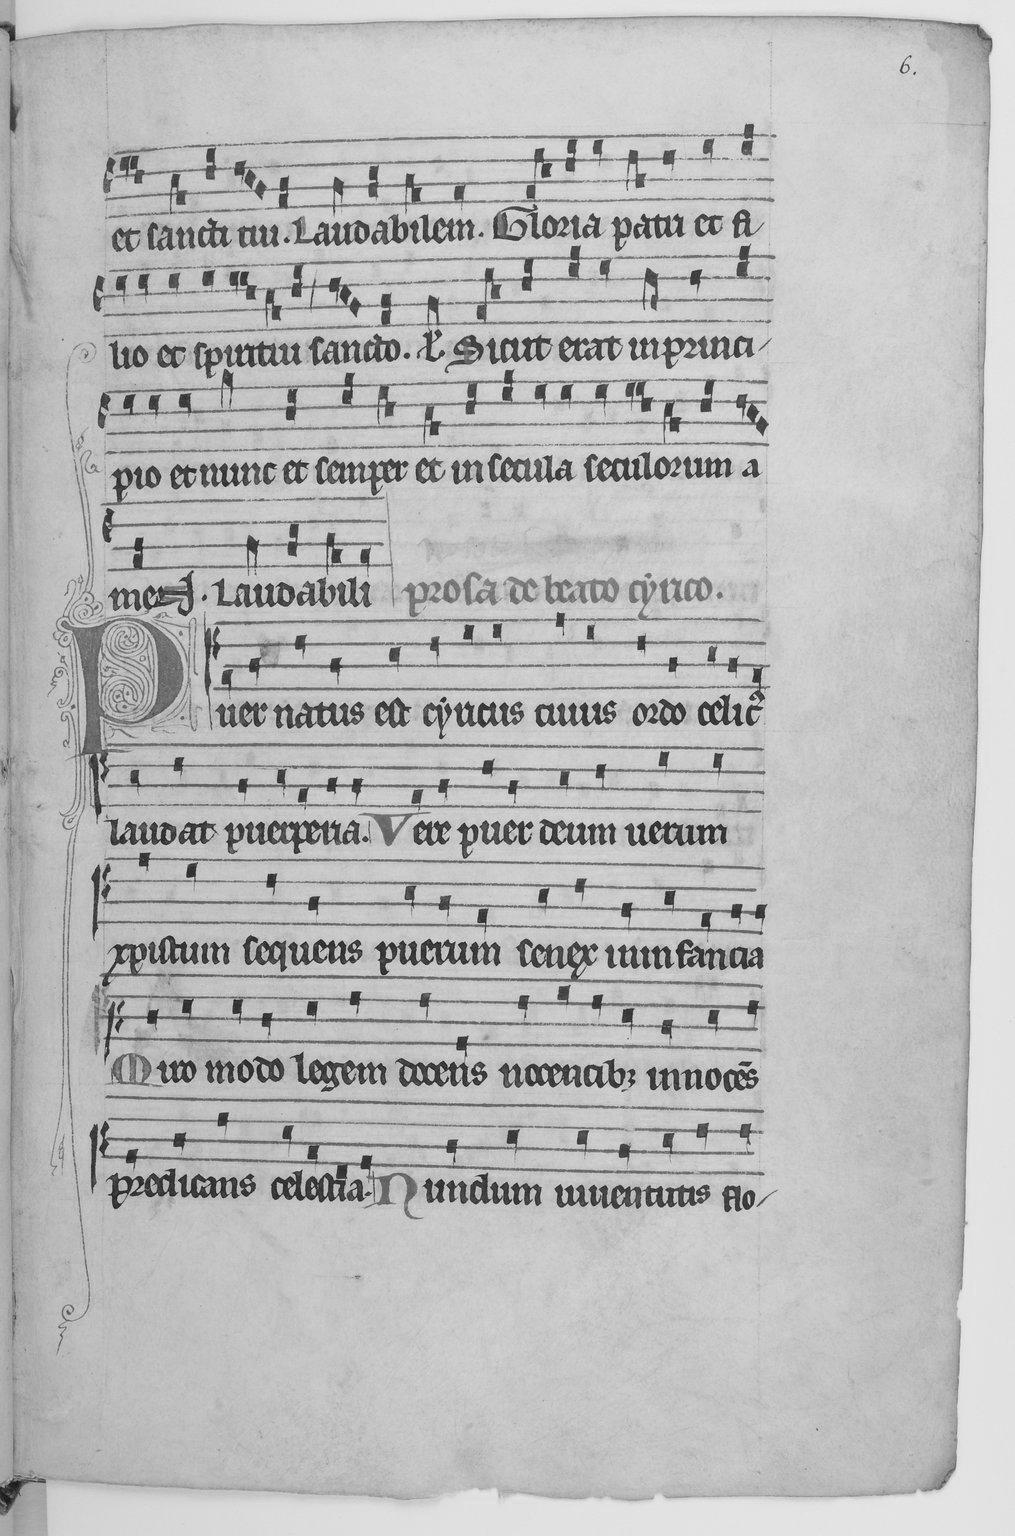 6.
et sancti tui. Laudabilem. Gloria patri et fi
lio et spiritui sancto. R. Sicut erat in princi
pio et nunc et semper et in secula seculorum a
men. Laudabili prosa de beato cyrico.
Puer natus est cyricus cuius ordo celicꝰ
laudat puerperia. Vere puer deum uerum
xpistum sequens puerum senex in infancia
Miro modo legem docens nocencibꝫ innocēs
predicans celestia. Nundum iuuentutis flo